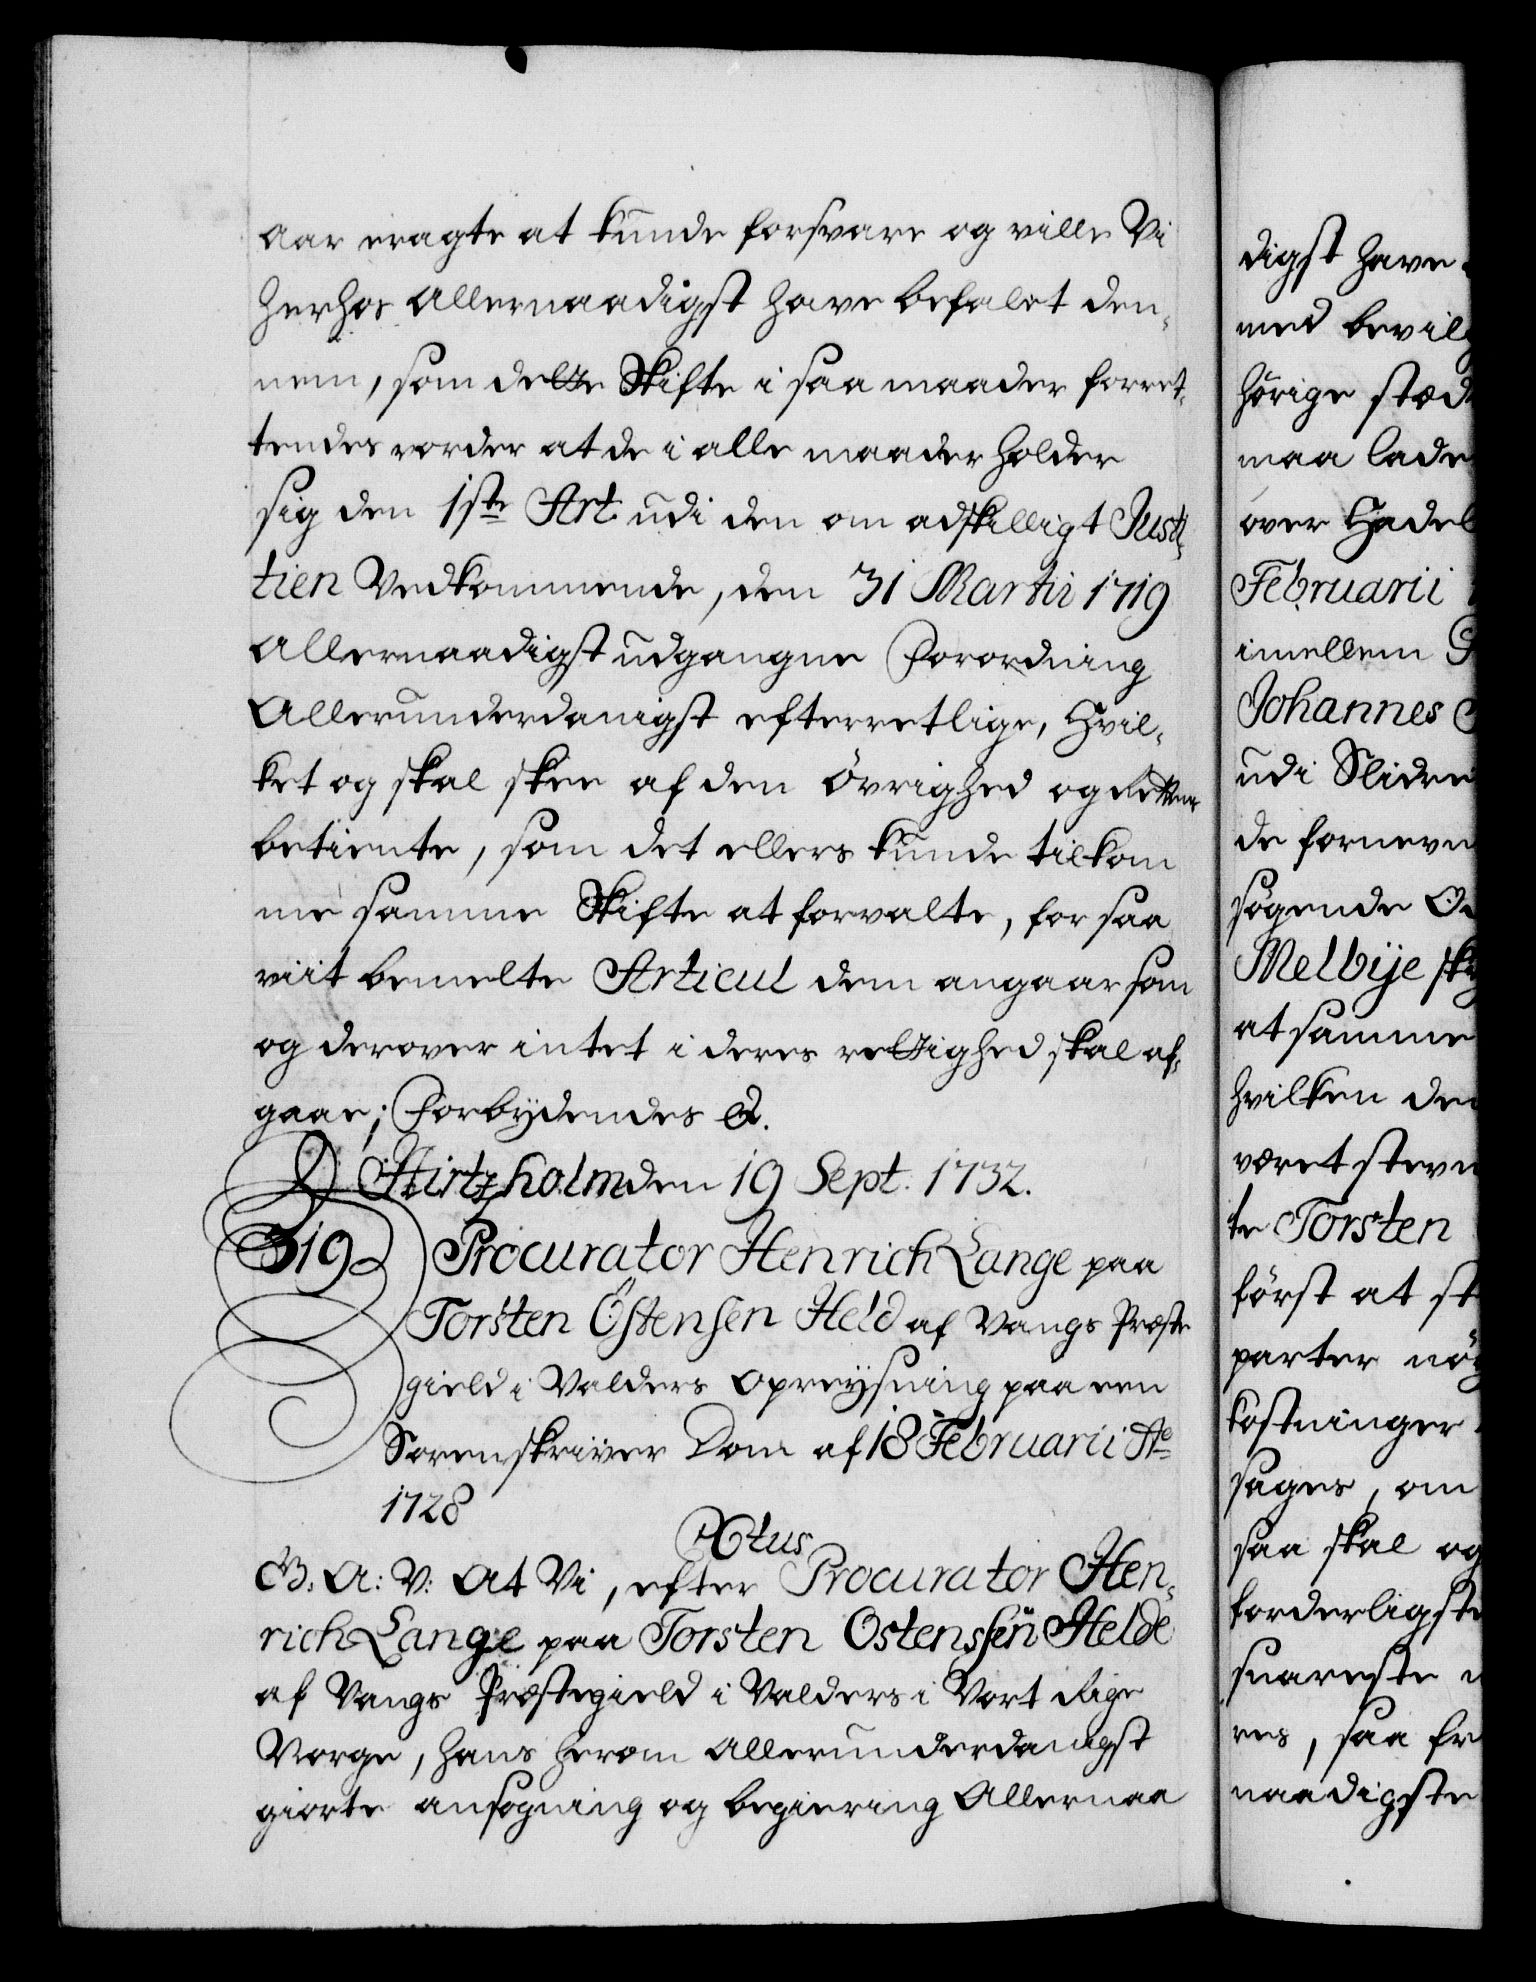 aar eragte at kunde forsvare og ville Vi
herhos Allernaadigst have befalet den,
nem, som dette Skifte i saa maader forret,
tendes vorder at de i alle maader holder
sig den 1ste Art: udi den om adskilligt Justi,
tien Vedkommende, den 31 Martii 1719
Allernaadigst udgangne Forordning
Allerunderdanigst efterretlige, Hvil,
ket og skal skee af den Övrighed og Rettens
betiente, som det ellers kunde tilkom
me samme Skifte at forvalte, for saa
viit bemelte Articul dem angaar som
og derover intet i deres rettighed skal af,
gaae; Forbydendes &.
Hirtzholm den 19 Sept. 1732.
319 Procurator Henrich Lange paa
Torsten Östensen Held af Vangs Præste
gield i Valders Opreysning paa een
Sorenskriver Dom af 18 Februarii Ao
1728
Ctus
G: A: V: At Vi, efter Procurator Hen,
rich Lange paa Torsten Ostenssen Helde
af Vangs Præstegield i Valders i Vort Rige
Norge, hans herom Allerunderdanigst
giorte ansøgning og begiering Allernaa
digst have
med bevilg
hörige stæd
maa lade
over Hadel
Februarii
imellem
Johannes
udi Slidre
de fornevn
søgende
Melbye sky
at samme
hvilken den
været stevn
te Torsten
först at st
parter nöy
kostninger
sages, om
saa skal og
forderligste
snareste
res, saa fr
naadigste